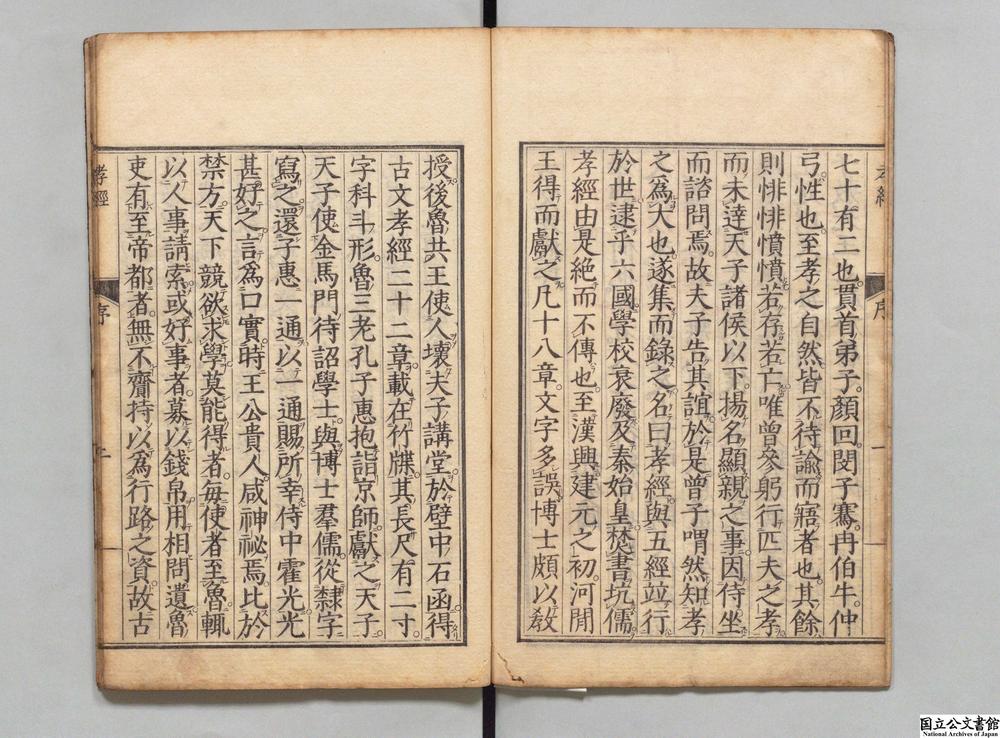 七十有二也貫首弟子顔回閔子騫冉伯牛仲
弓性也至孝之自然皆不待諭而寤者也其餘
則悱悱憤憤若存若亡唯曾參躬行匹夫之孝
而未達天子諸侯以下揚名顯親之事因侍坐
而諮問焉故夫子告其誼於是曾子喟然知孝
之爲大也遂集而錄之名曰孝經與五經竝行
於世逮乎六國學校衰廢及秦始皇焚書坑儒
孝經由是絶而不傳也至漢興建元之初河閒
王得而獻之凡十八章文字多誤博士頗以敎
授後魯共王使人壞夫子講堂於壁中石函得
古文孝經二十二章載在竹牒其長尺有二寸
字科斗形魯三老孔子惠抱詣京師獻之天子
天子使金馬門待詔學士與博士羣儒從隸字
寫之還子惠一通以一通賜所幸侍中霍光光
甚好之言爲口實時王公貴人咸神祕焉比於
禁方天下競欲求學莫能得者每使者至魯輒
以人事請索或好事者募以錢帛用相問遺魯
吏有至帝都者無不齎持以爲行路之資故古
孝經
序
国立公文書館
National Archives of Japan